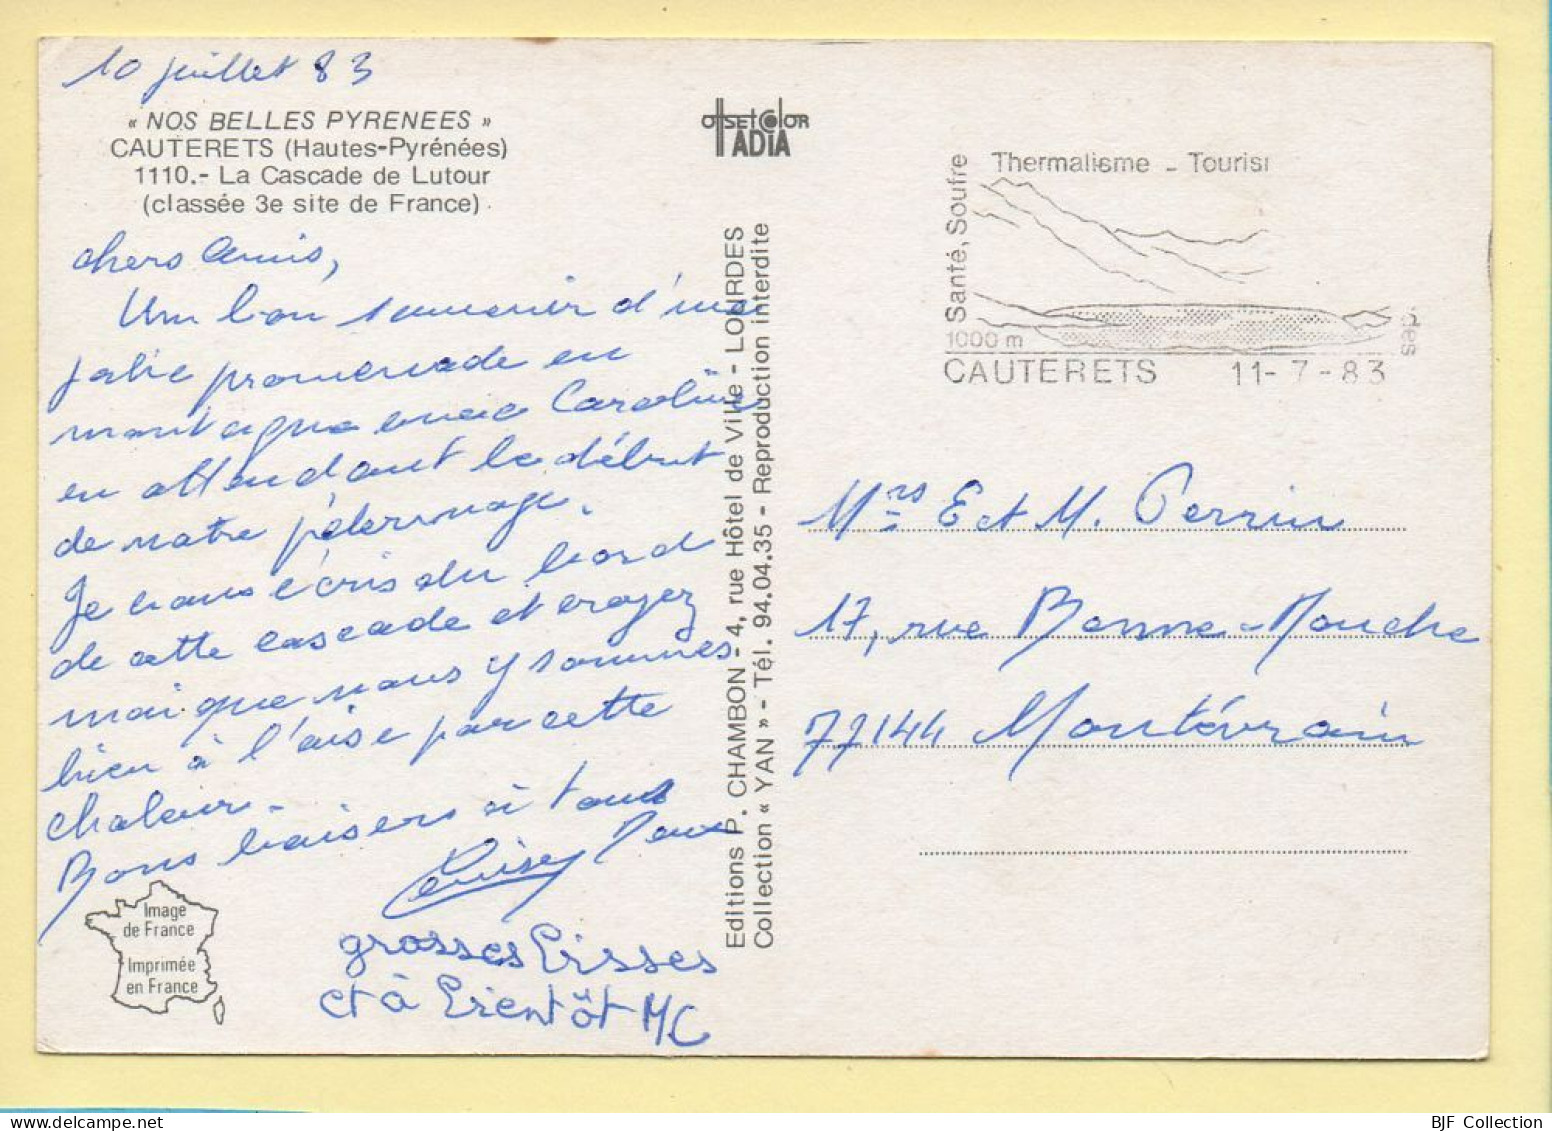 10 juillet 83
« NOS BELLES PYRENEES »
CAUTERETS (Hautes-Pyrénées)
1110.- La Cascade de Lutour
(classée 3e site de France)
chers Amis,
Un bon souvenir d'une
jolie promenade en
montagne avec Caroline
en attendant le début
de notre pélerinage.
Je vous écris du bord
de cette cascade et croyez
moi que nous y sommes
bien à l'aise par cette
chaleur.
Bons baisers à tous
grosses bisses
et à bientôt MC
Image
de France
Imprimée
en France
OffSEt COlOR
IADIA
Editions P. CHAMBON - 4, rue Hôtel de Ville - LOURDES
Collection « YAN » - Tél. 94.04.35 - Reproduction interdite
Thermalisme - Touris
Santé, Soufre
1000 m
des
CAUTERETS 11-7-83
Mrs E et M. Perrin
17, rue Bonne-Mouche
77144 Montévrain
BJF Collection